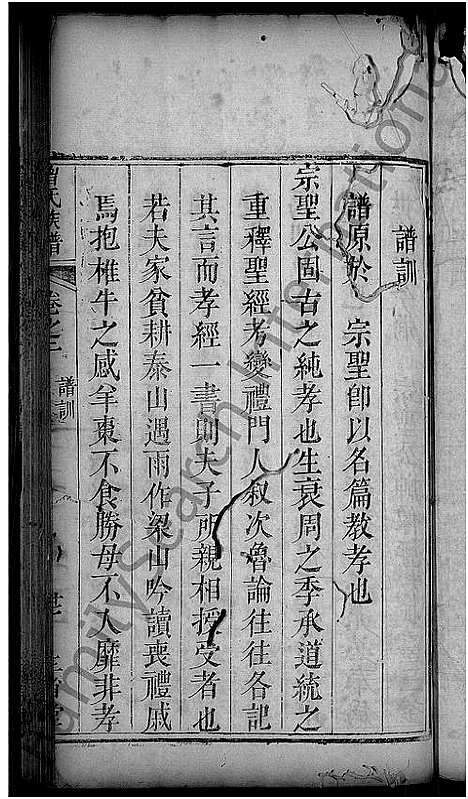 譜訓
譜原於 宗聖即以名篇教孝也
宗聖公固古之純孝也生衰周之季承道統之
重釋聖經考變禮門人叙次魯論往往各記
其言而孝經一書則夫子所親相授受者也
若夫家貧耕泰山遇雨作梁山吟讀喪禮感
焉抱椎牛之感羊棗不食勝母不入靡非孝
曾氏族譜 卷之二 譜訓
FamilySearch International